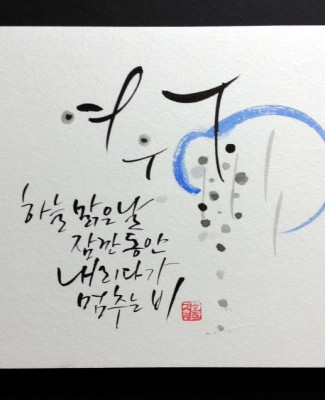 여우
하늘 맑은날
잠깐동안
내리다가
멈추는 비